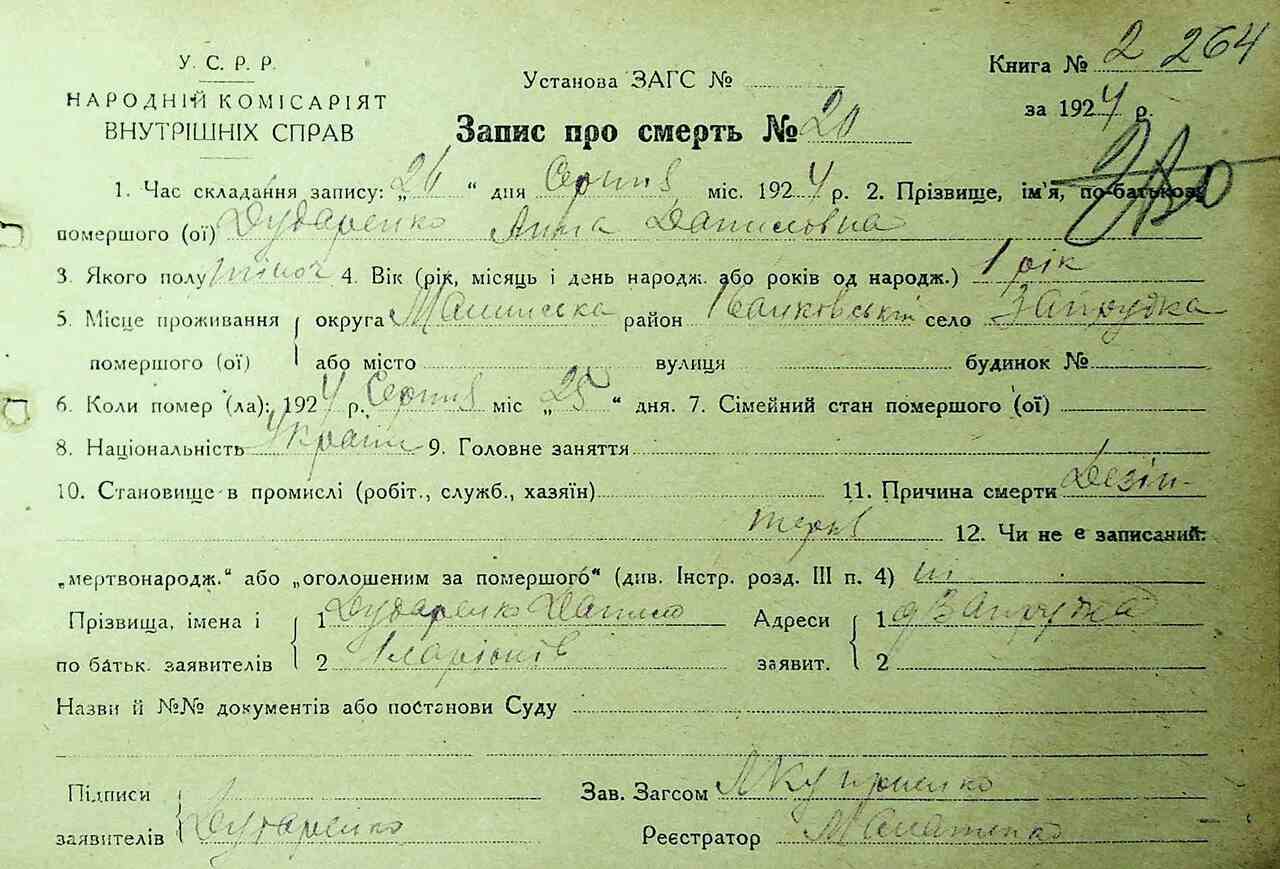 У. С. Р. Р.
НАРОДНІЙ КОМІСАРІЯТ
ВНУТРІШНІХ СПРАВ
Установа ЗАГС №
Книга № 2 264
за 1924 р.
Запис про смерть № 20
1. Час складання запису: „26 “ дня Серпня міс. 1924 р. 2. Прізвище, ім'я, по-батькові
помершого (ої) Дударенко Анна Даниловна
3. Якого полу жіноч 4. Вік (рік, місяць і день народж. або років од народж.) 1 рік
5. Місце проживання округа район село Запрудка
помершого (ої) або місто вулиця будинок №
6. Коли помер (ла): 1924 р. Серпня міс „ 25 “ дня. 7. Сімейний стан помершого (ої)
8. Національність Україн 9. Головне заняття
10. Становище в промислі (робіт., служб., хазяїн) 11. Причина смерти Дезін-
терія 12. Чи не є записаний:
„мертвонародж.“ або „оголошеним за помершого“ (див. Інстр. розд. III п. 4) ні
Прізвища, імена і 1 Дударенко Данило Адреси 1 д Запрудка
по батьк. заявителів 2 Іларіонів заявит. 2
Назви й №№ документів або постанови Суду
Підписи Зав. Загсом
заявителів Дударенко Реєстратор